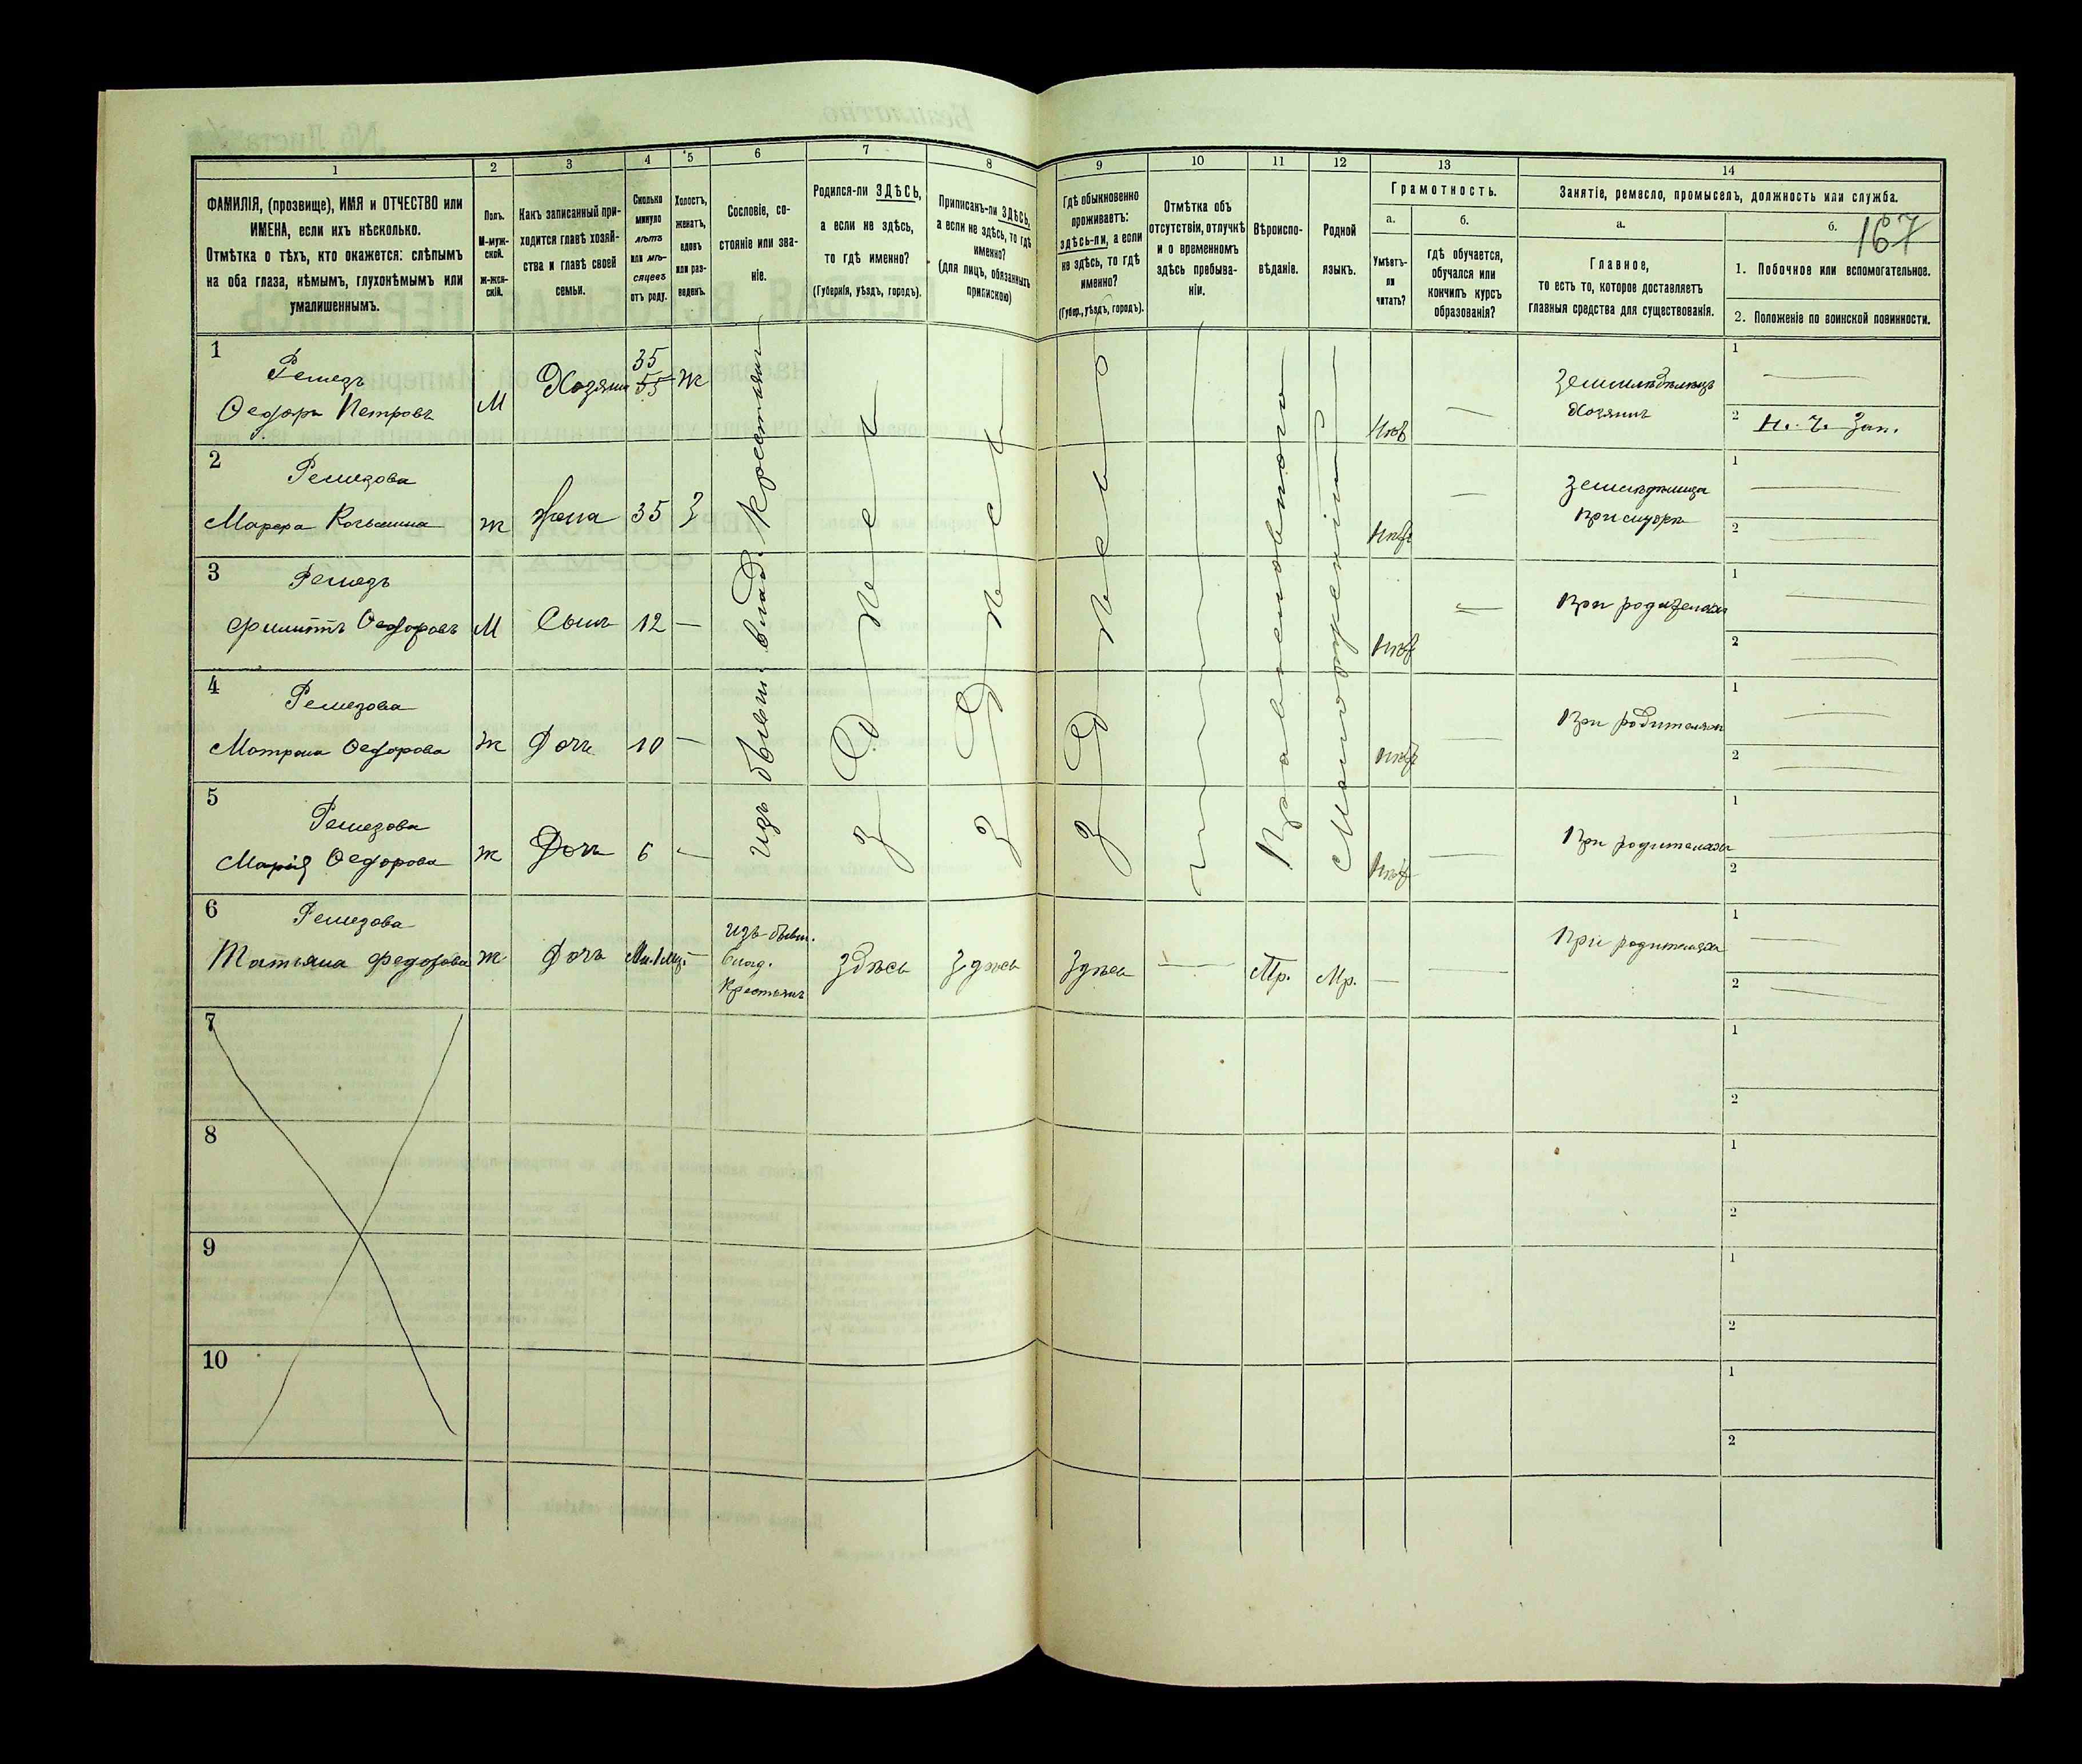 1
2
3
4
5
6
7
8
9
10
11
12
13
14
ФАМИЛІЯ, (прозвище), ИМЯ и ОТЧЕСТВО или
ИМЕНА, если ихъ нѣсколько.
Отмѣтка о тѣхъ, кто окажется: слѣпымъ
на оба глаза, нѣмымъ, глухонѣмымъ или
умалишеннымъ.
Полъ.
М-муж-
ской.
Ж-жен-
скій.
Какъ записанный при-
ходится главѣ хозяй-
ства и главѣ своей
семьи.
Сколько
минуло
лѣтъ
или мѣ-
сяцевъ
отъ роду.
Холостъ,
женатъ,
вдовъ
или раз-
веденъ.
Сословіе, со-
стояніе или зва-
ніе.
Родился-ли ЗДѢСЬ,
а если не здѣсь,
то гдѣ именно?
(Губернія, уѣздъ, городъ).
Приписанъ-ли ЗДѢСЬ,
а если не здѣсь, то гдѣ
именно?
(для лицъ, обязанныхъ
припискою)
Гдѣ обыкновенно
проживаетъ:
здѣсь-ли, а если
не здѣсь, то гдѣ
именно?
(Губер., уѣздъ, городъ).
Отмѣтка объ
отсутствіи, отлучкѣ
и о временномъ
здѣсь пребыва-
ніи.
Вѣроиспо-
вѣданіе.
Родной
языкъ.
Грамотность.
а.
б.
Умѣетъ-
ли
читать?
гдѣ обучается,
обучался или
кончилъ курсъ
образованія?
Занятіе, ремесло, промыселъ, должность или служба.
а.
б.
167
Главное,
то есть то, которое доставляетъ
главныя средства для существованія.
1. Побочное или вспомогательное.
2. Положеніе по воинской повинности.
1
Ремезъ
Ѳедоръ Петровъ
М
Хозяинъ
35
55
Ж
изъ бывш. влад. Крестьянъ
Здѣсь
Здѣсь
Здѣсь
Православнаго
Малороссійскій
Нѣтъ
—
Земледѣлецъ
Хозяинъ
1
—
2
Н. Ч. Зап.
2
Ремезова
Ж
Жена
35
З
Нѣтъ
—
1
—
2
—
3
Ремезъ
Филиппъ Ѳедоровъ
М
Сынъ
12
—
Нѣтъ
—
При родителяхъ
1
—
2
—
4
Ремезова
Матрона Ѳедорова
Ж
Дочь
10
—
Нѣтъ
—
При родителяхъ
1
—
2
—
5
Ремезова
Марія Ѳедорова
Ж
Дочь
6
—
Нѣтъ
—
При родителяхъ
1
—
2
—
6
Ремезова
Татьяна Федорова
Ж
Дочь
—
изъ бывш.
влад.
Крестьянъ
Здѣсь
Здѣсь
Здѣсь
—
Пр.
Мр.
—
—
При родителяхъ
1
—
2
—
7
1
2
8
1
2
9
1
2
10
1
2